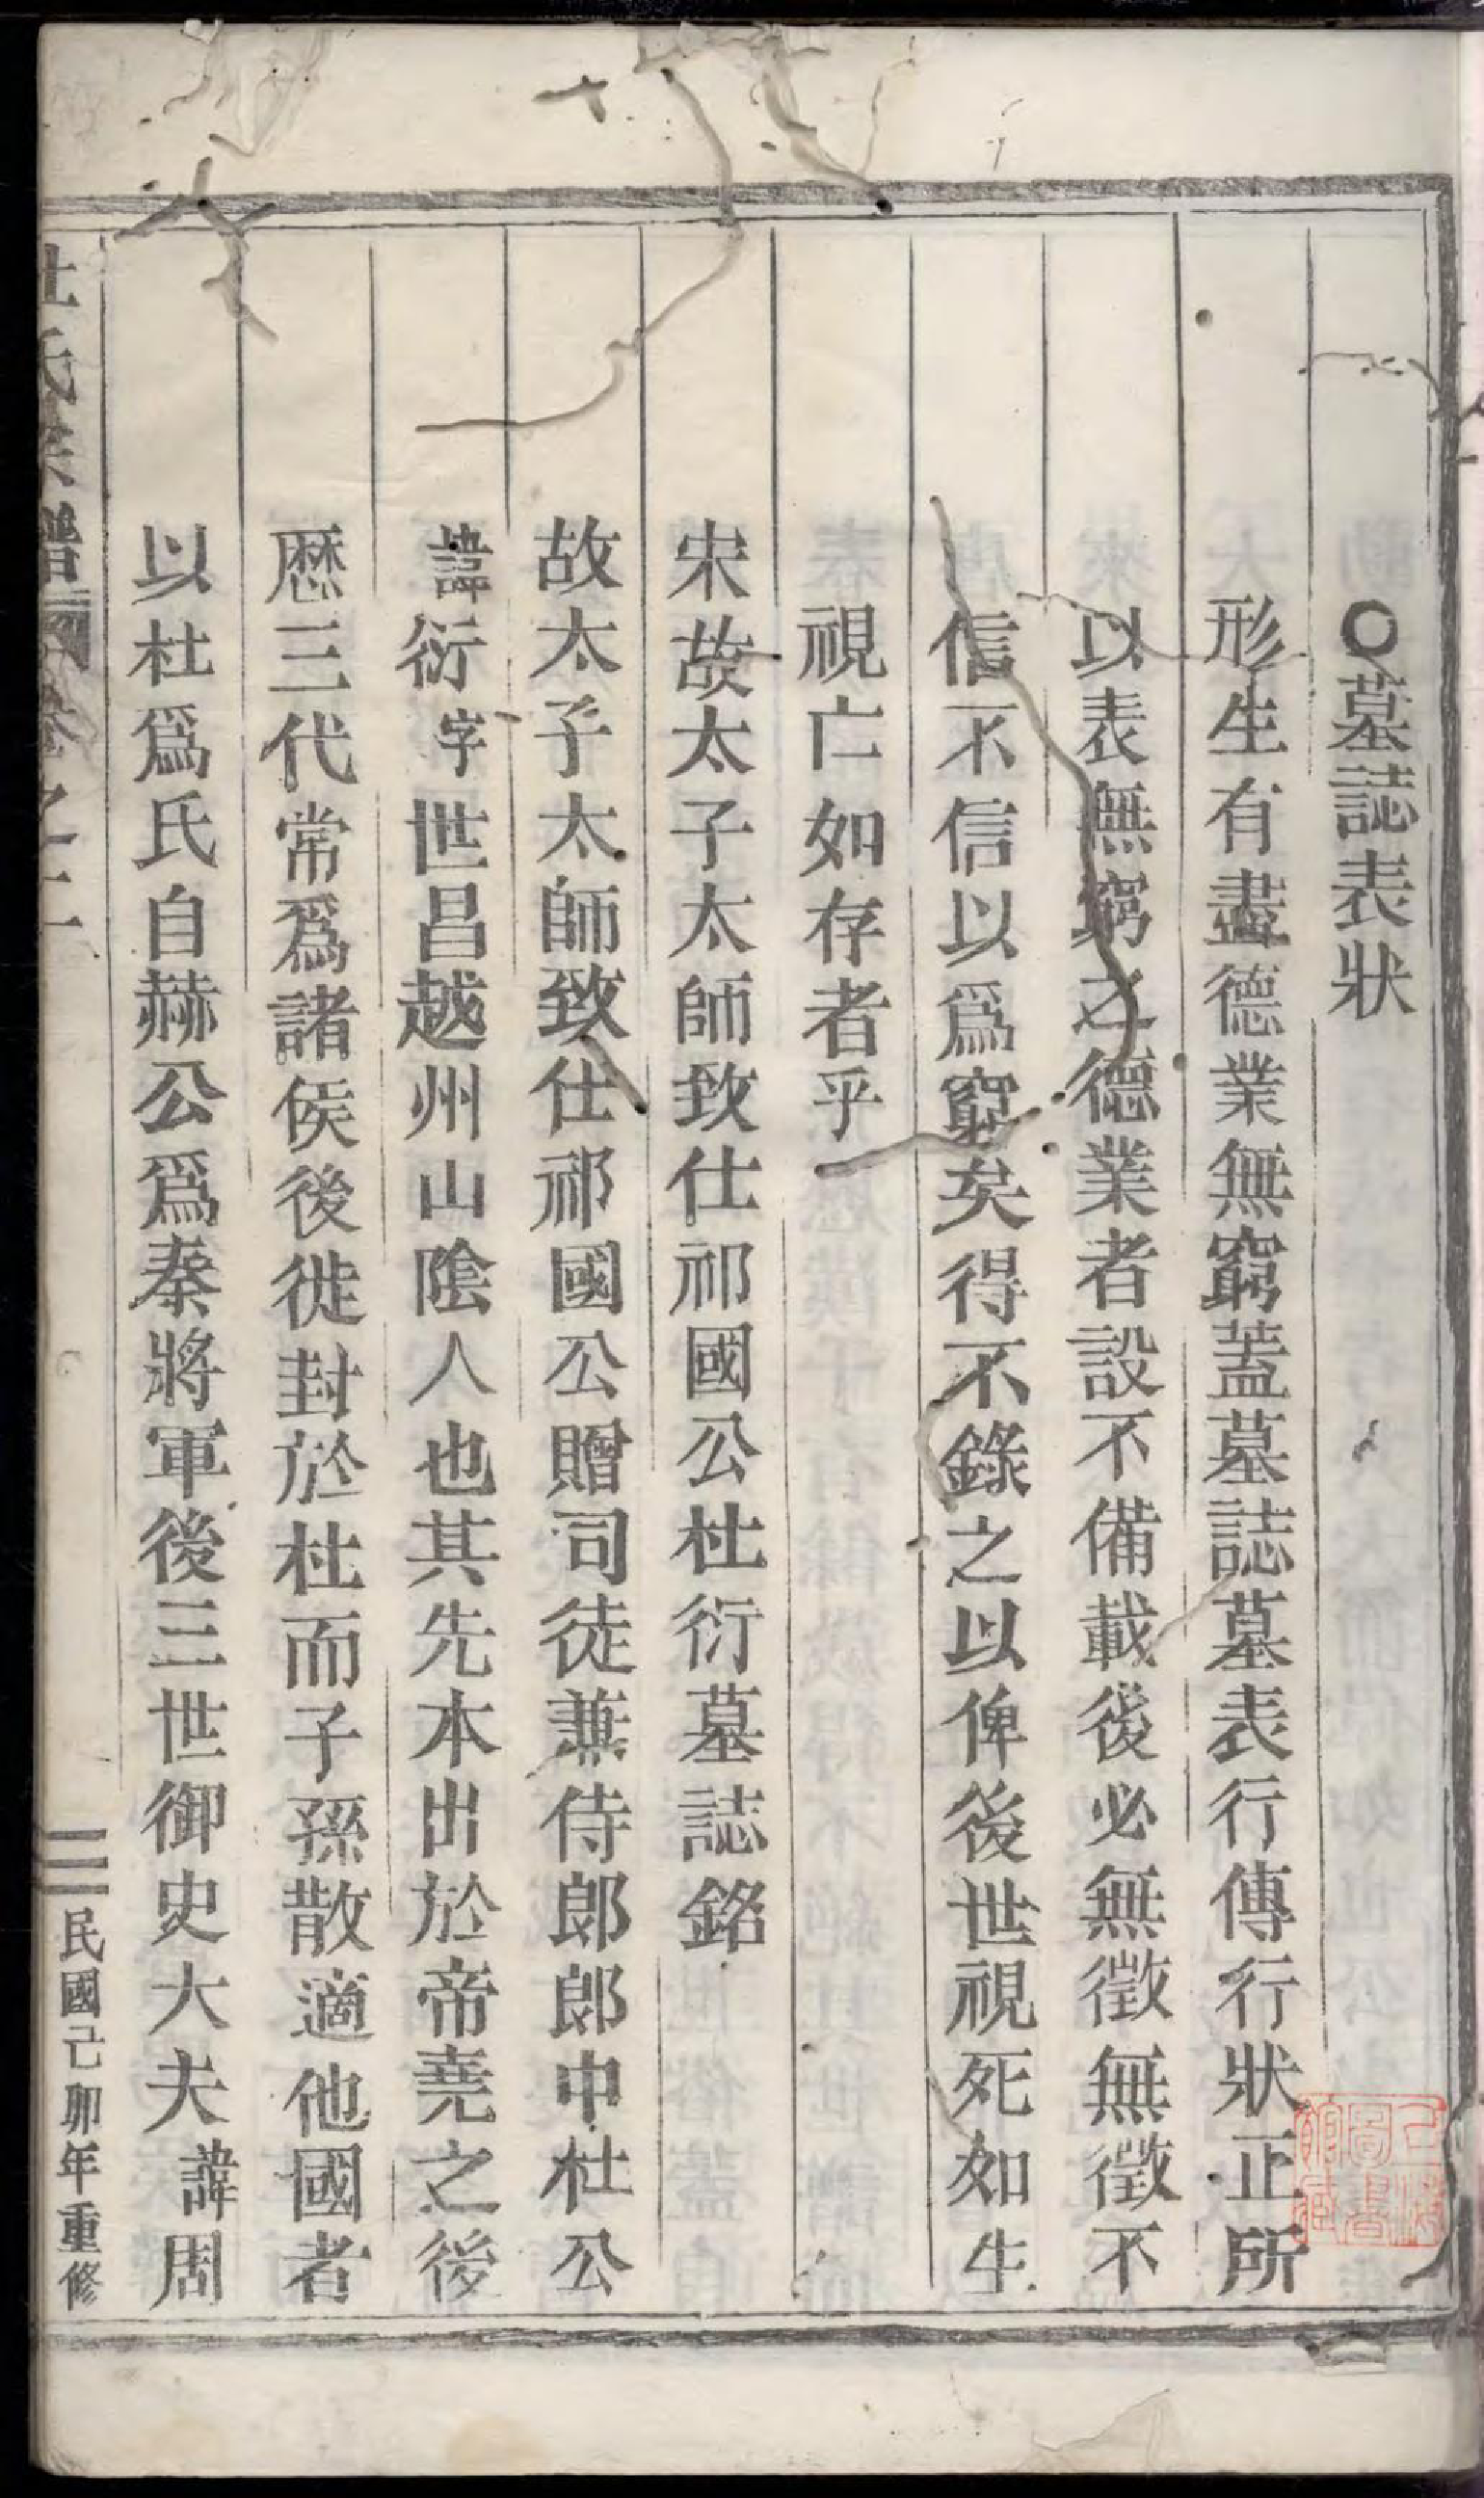 〇墓誌表狀
形生有盡德業無窮蓋墓誌墓表行傳行狀正所
以表無窮之德業者設不備載後必無徵無徵不
信不信以爲窮矣得不錄之以俾後世視死如生
視亡如存者乎
宋故太子太師致仕祁國公杜衍墓誌銘
故太子太師致仕祁國公贈司徒兼侍郎郎中杜公
諱衍字世昌越州山陰人也其先本出於帝堯之後
歷三代常爲諸侯後徙封於杜而子孫散適他國者
以杜爲氏自赫公爲秦將軍後三世御史大夫諱周
杜氏宗譜 卷之二
三 民國己卯年重修